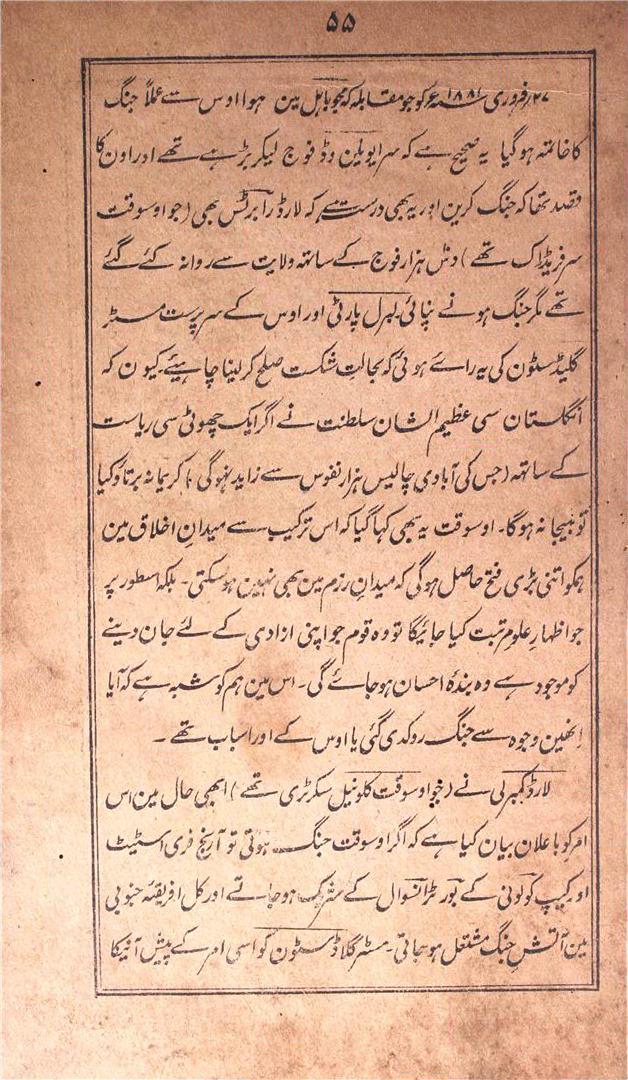 ۵۵
۲۷؍فروری ۱۸۸۱ء کو جو مقابلہ کہ مجوبا ہل مین ہوا اوس سے عملاً جنگ
کا خاتمہ ہو گیا یہ صحیح ہے کہ سر ایولین وڈ فوج لیکر بڑہے تھے اور اون کا
قصد تھا کہ جنگ کرین اور یہ بھی درست ہے کہ لارڈ رابرٹس بھی (جو اوسوقت
سر فریڈرک تھے) دس ہزار فوج کے ساتھ ولایت سے روانہ کئے گئے
تھے مگر جنگ ہونے نپائی۔ لبرل پارٹی اور اوس کے سرپرست مسٹر
گلیڈسٹون کی یہ رائے ہوئی کہ بحالت شکست صلح کر لینا چاہیئے کیون کہ
انگلستان سی عظیم الشان سلطنت نے اگر ایک چھوٹی سی ریاست
کے ساتھ (جس کی آبادی چالیس ہزار نفوس سے زاید نہوگی) کریمانہ برتاؤ کیا
تو بیجا نہ ہوگا۔ اوسوقت یہ بھی کہا گیا کہ اس ترکیب سے میدانِ اخلاق مین
ہمکو اتنی بڑی فتح حاصل ہوگی کہ میدانِ رزم مین بھی نہین ہوسکتی۔ بلکہ اسطور پر
جو اظہارِ علومرتبت کیا جائیگا تو وہ قوم جو اپنی ازادی کے لئے جان دینے
کو موجود ہے وہ بندۂ احسان ہو جائے گی۔ اس مین ہم کو شبہ ہے کہ آیا
اِنھین وجوہ سے جنگ روکدی گئی یا اوس کے اور اسباب تھے۔
لارڈ کمبرلی نے (جو اوسوقت کلونیل سکرٹری تھے) ابھی حال مین اس
امر کو باعلان بیان کیا ہے کہ اگر اوسوقت جنگ ہوتی تو آرنج فری اسٹیٹ
اور کیپ کولونی کے بور ٹرانسوال کے شریک ہو جاتے اور کل افریقۂ جنوبی
مین آتشِ جنگ مشتعل ہو جاتی۔ مسٹر گلاڈسٹون کو اسی امر کے پیش آنیکا